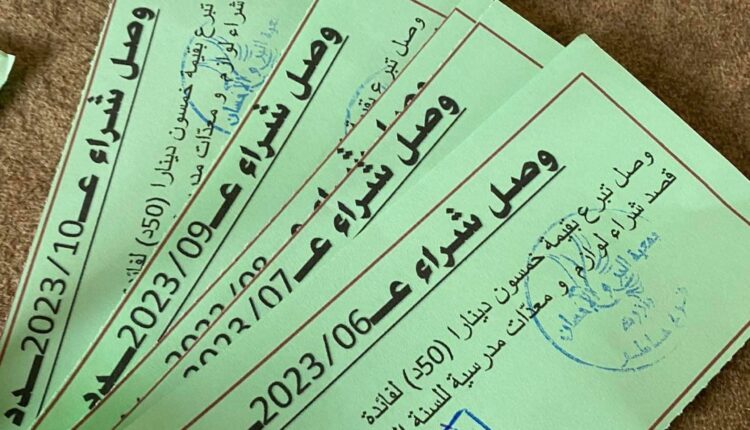 وصل شراء عـــ2023/10ـــدد
وصل تبرع بقيمة خمسون دينارا (50د) لفائدة
شراء لوازم و معدات
وصل شراء عـــ2023/09ـــدد
وصل تبرع بقيمة
وصل شراء عـــ2023/08
وصل شراء عـــ2023/07
وصل شراء عـــ2023/06
وصل تبرع بقيمة خمسون دينارا (50د) لفائدة
قصد شراء لوازم و معدات مدرسية للسنة
جمعية البر و الإحسان